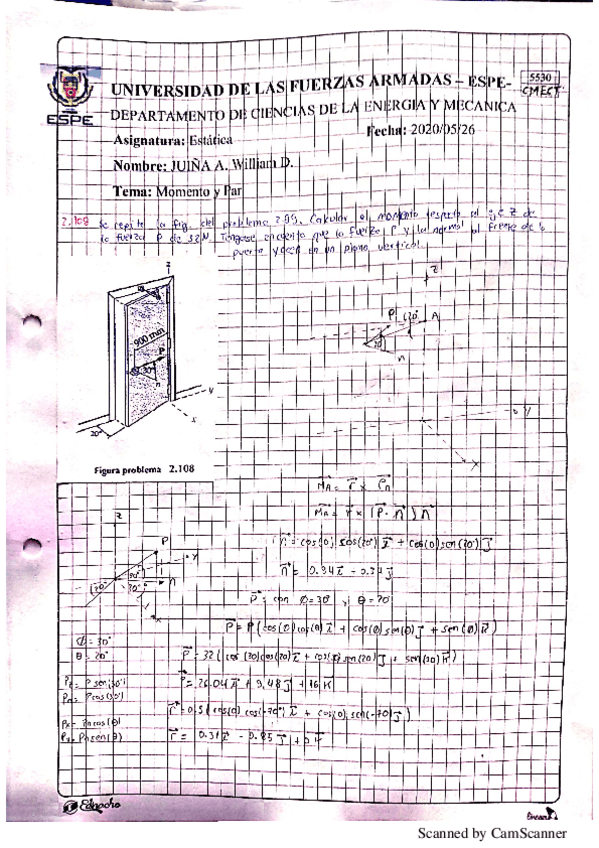 UNIVERSIDAD DE LAS FUERZAS ARMADAS – ESPE-
5530
CMECT
DEPARTAMENTO DE CIENCIAS DE LA ENERGIA Y MECANICA
ESPE
Asignatura: Estática
Fecha: 2020/05/26
Nombre: JUIÑA A. William D.
Tema: Momento y Par
2.108 Se repite la fig. del problema 2.99. Calcular el momento respecto al eje z de
la fuerza P de 32N. Tengase en cuenta que la fuerza P y la normal al frente de la
puerta yacen en un plano vertical.
z
z
P
20°
A
30°
n
900 mm
P
30°
n
y
x
20°
y
x
Figura problema 2.108
M_A = r x P_n
M_A = r x (P · n) n
z
n = cos(0) cos(20°) i + cos(0) sen(20°) j
P
y
n
30°
20°
x
P; con Ø=30° ; θ=20°
P = P ( cos(Ø) cos(θ) i + cos(Ø) sen(θ) j + sen(Ø) k )
Ø = 30°
θ = 20°
P = 32 ( cos(30) cos(20) i + cos(30) sen(20) j + sen(30) k )
Pz = P sen(30°)
P = 26.04 i + 9.48 j + 16 k
Pn = P cos(30°)
Px = Pn cos(θ)
Py = Pn sen(θ)
r = 0.31 i - 0.85 j + 0 k
Edi
Scanned by CamScanner